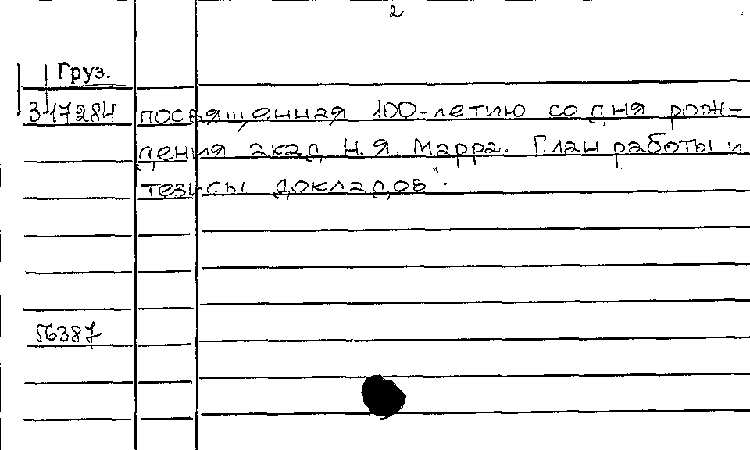 2
Груз.
317284 посвященная 100-летию со дня рож-
дения акад. Н.Я. Марра. План работы и
тезисы докладов".
56387